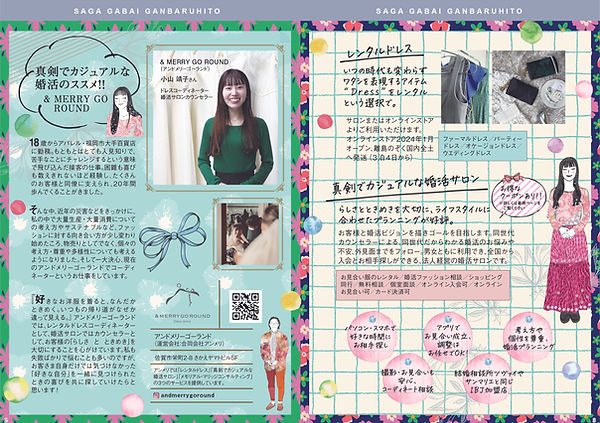 SAGA GABAI GANBARUHITO
真剣でカジュアルな
婚活のススメ!!
& MERRY GO
ROUND
& MERRY GO ROUND
(アンドメリーゴーランド)
小山 靖子さん
ドレスコーディネーター
婚活サロンカウンセラー
18歳からアパレル・福岡市大手百貨店
に勤務。もともとはとても人見知りで、
苦手なことにチャレンジするという意味
で飛び込んだ接客の仕事。困難も喜び
も数えきれないほど経験し、たくさん
のお客様と同僚に支えられ、20年間
歩んでくることができました。
そんな中、近年の災害などをきっかけに、
私の中で大量生産・大量消費について
の考え方やサステナブルなど、ファッ
ションに対する向き合い方が少し変わり
始めたころ、物売りとしてでなく、個々の
考え方・尊重や多様性についても考える
ようになりました。そして一大決心、現在
のアンドメリーゴーランドでコーディ
ネーターというお仕事をしています。
『好きなお洋服を着ると、なんだか
ときめく。いつもの帰り道がなぜか
違って見える。』アンドメリーゴーランド
では、レンタルドレスコーディネーター
として、婚活サロンではカウンセラーと
して、お客様の『らしさ と ときめき』を
大切にすることを心がけています。私も
失敗ばかりで悩むことも多いのですが、
お客さま自身だけでは気づけなかった
「好きな自分」を一緒に見つけられた
ときの喜びを共に探していけたらと
思います!
&MERRYGOROUND
アンドメリーゴーランド
(運営会社:合同会社アンメリ)
佐賀市栄町2-8さかえヤマトビル5F
アンメリでは「レンタルドレス」「真剣でカジュアルな
婚活サロン」「メモリアル・マリッジコンサルティング」
の3つのサービスを提供しています。
andmerrygoround
SAGA GABAI GANBARUHITO
レンタルドレス
いつの時代も変わらず
ワタシを表現するアイテム
"Dress"をレンタル
という選択で。
サロンまたはオンラインストア
よりご利用いただけます。
オンラインストア2024年1月
オープン。離島のぞく国内全土
へ発送(3泊4日から)
ファーマルドレス/パーティー
ドレス/オケージョンドレス/
ウエディングドレス
真剣でカジュアルな婚活サロン
お得な
クーポンあり!!
らしさとときめきを大切に、ライフスタイルに
合わせたプランニングが好評。
お客様と婚活ビジョンを描きゴールを目指します。同世代
カウンセラーによる、同世代だからわかる婚活のお悩みや
不安、外見面までをフォロー。男女ともに利用でき、全国から
入会とお相手探しができる、法人経営の婚活サロンです。
お見合い服のレンタル/婚活ファッション相談/ショッピング
同行/無料相談/個室面談/オンライン入会可/オンライン
お見合い可/カード決済可
パソコン・スマホで
好きな時間に
お相手探し
アプリで
お見合い成立、
調整は
お任せでOK!
考え方や
個性を尊重。
婚活プランニング
撮影・お見合いも
安心、
コーディネート相談
結婚相談所ツヴァイや
サンマリエと同じ
IBJ加盟店
8